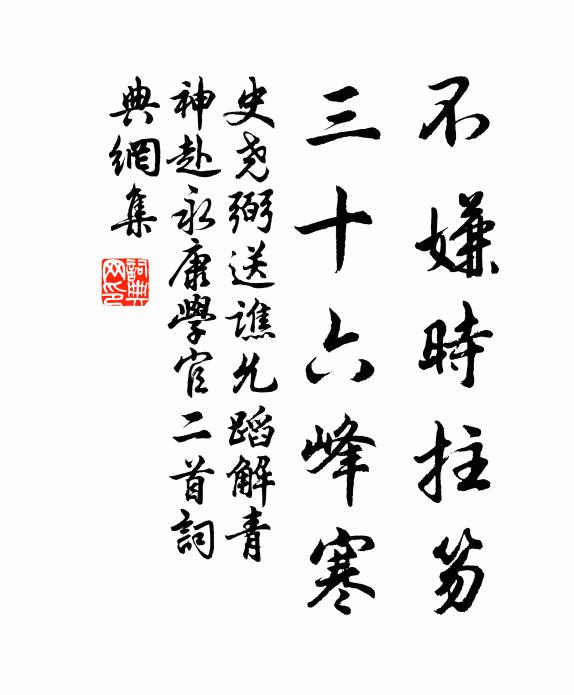 不嫌時拄笏
三十六峰寒
史堯弼送譙允蹈解青
神赴永康學官二首詞
典網集
詞典網印